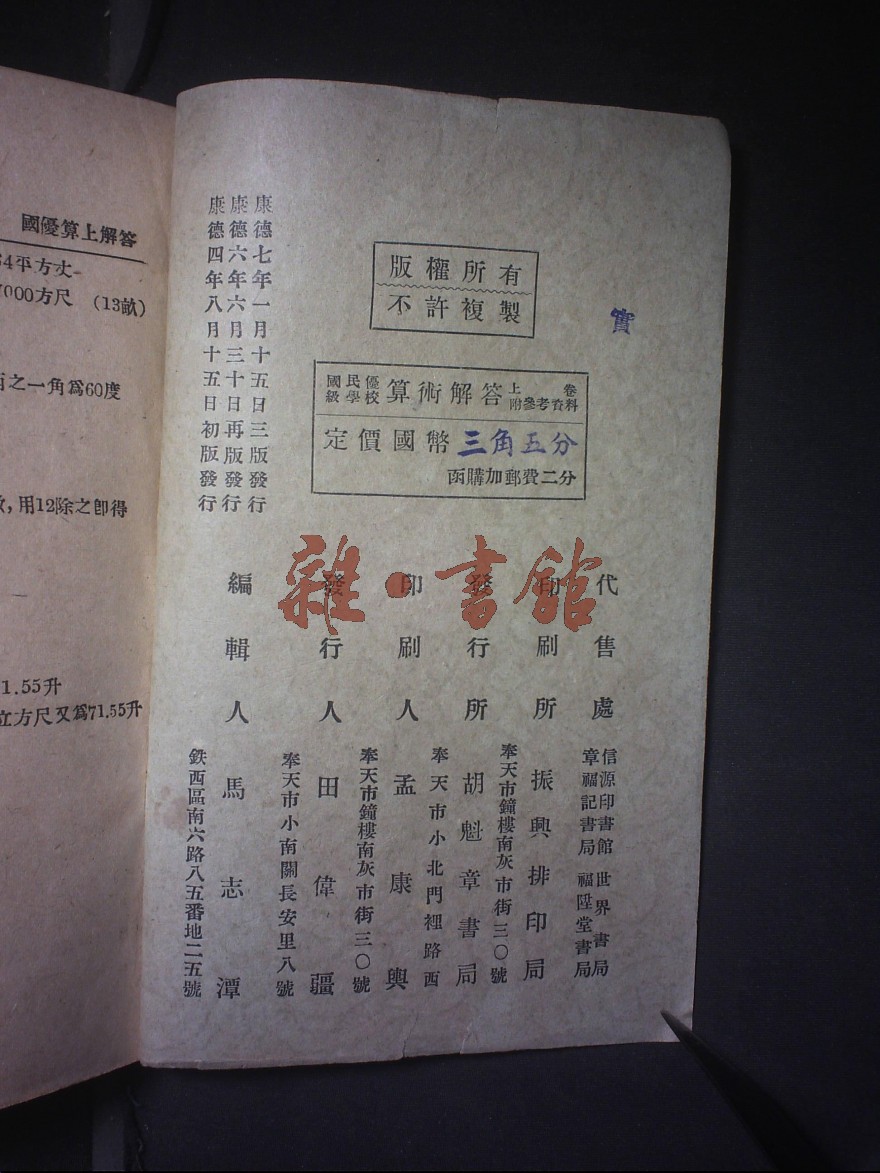 國優算上解答
4平方丈
000方尺 (13畝)
之一角爲60度
,用12除之卽得
1.55升
立方尺又爲71.55升
版權所有
不許複製
實
國民優級學校 算術解答 上卷 附參考資料
定價國幣 三角五分
函購加郵費二分
康德四年八月十五日初版發行
康德六年六月三十日再版發行
康德七年一月十五日三版發行
雜·書館
編輯人 馬志潭
鉄西區南六路八五番地二五號
發行人 田偉疆
奉天市小南關長安里八號
印刷人 孟康興
奉天市鐘樓南灰市街三〇號
發行所 胡魁章書局
奉天市小北門裡路西
印刷所 振興排印局
奉天市鐘樓南灰市街三〇號
代售處
信源印書館 世界書局
章福記書局 福陞堂書局